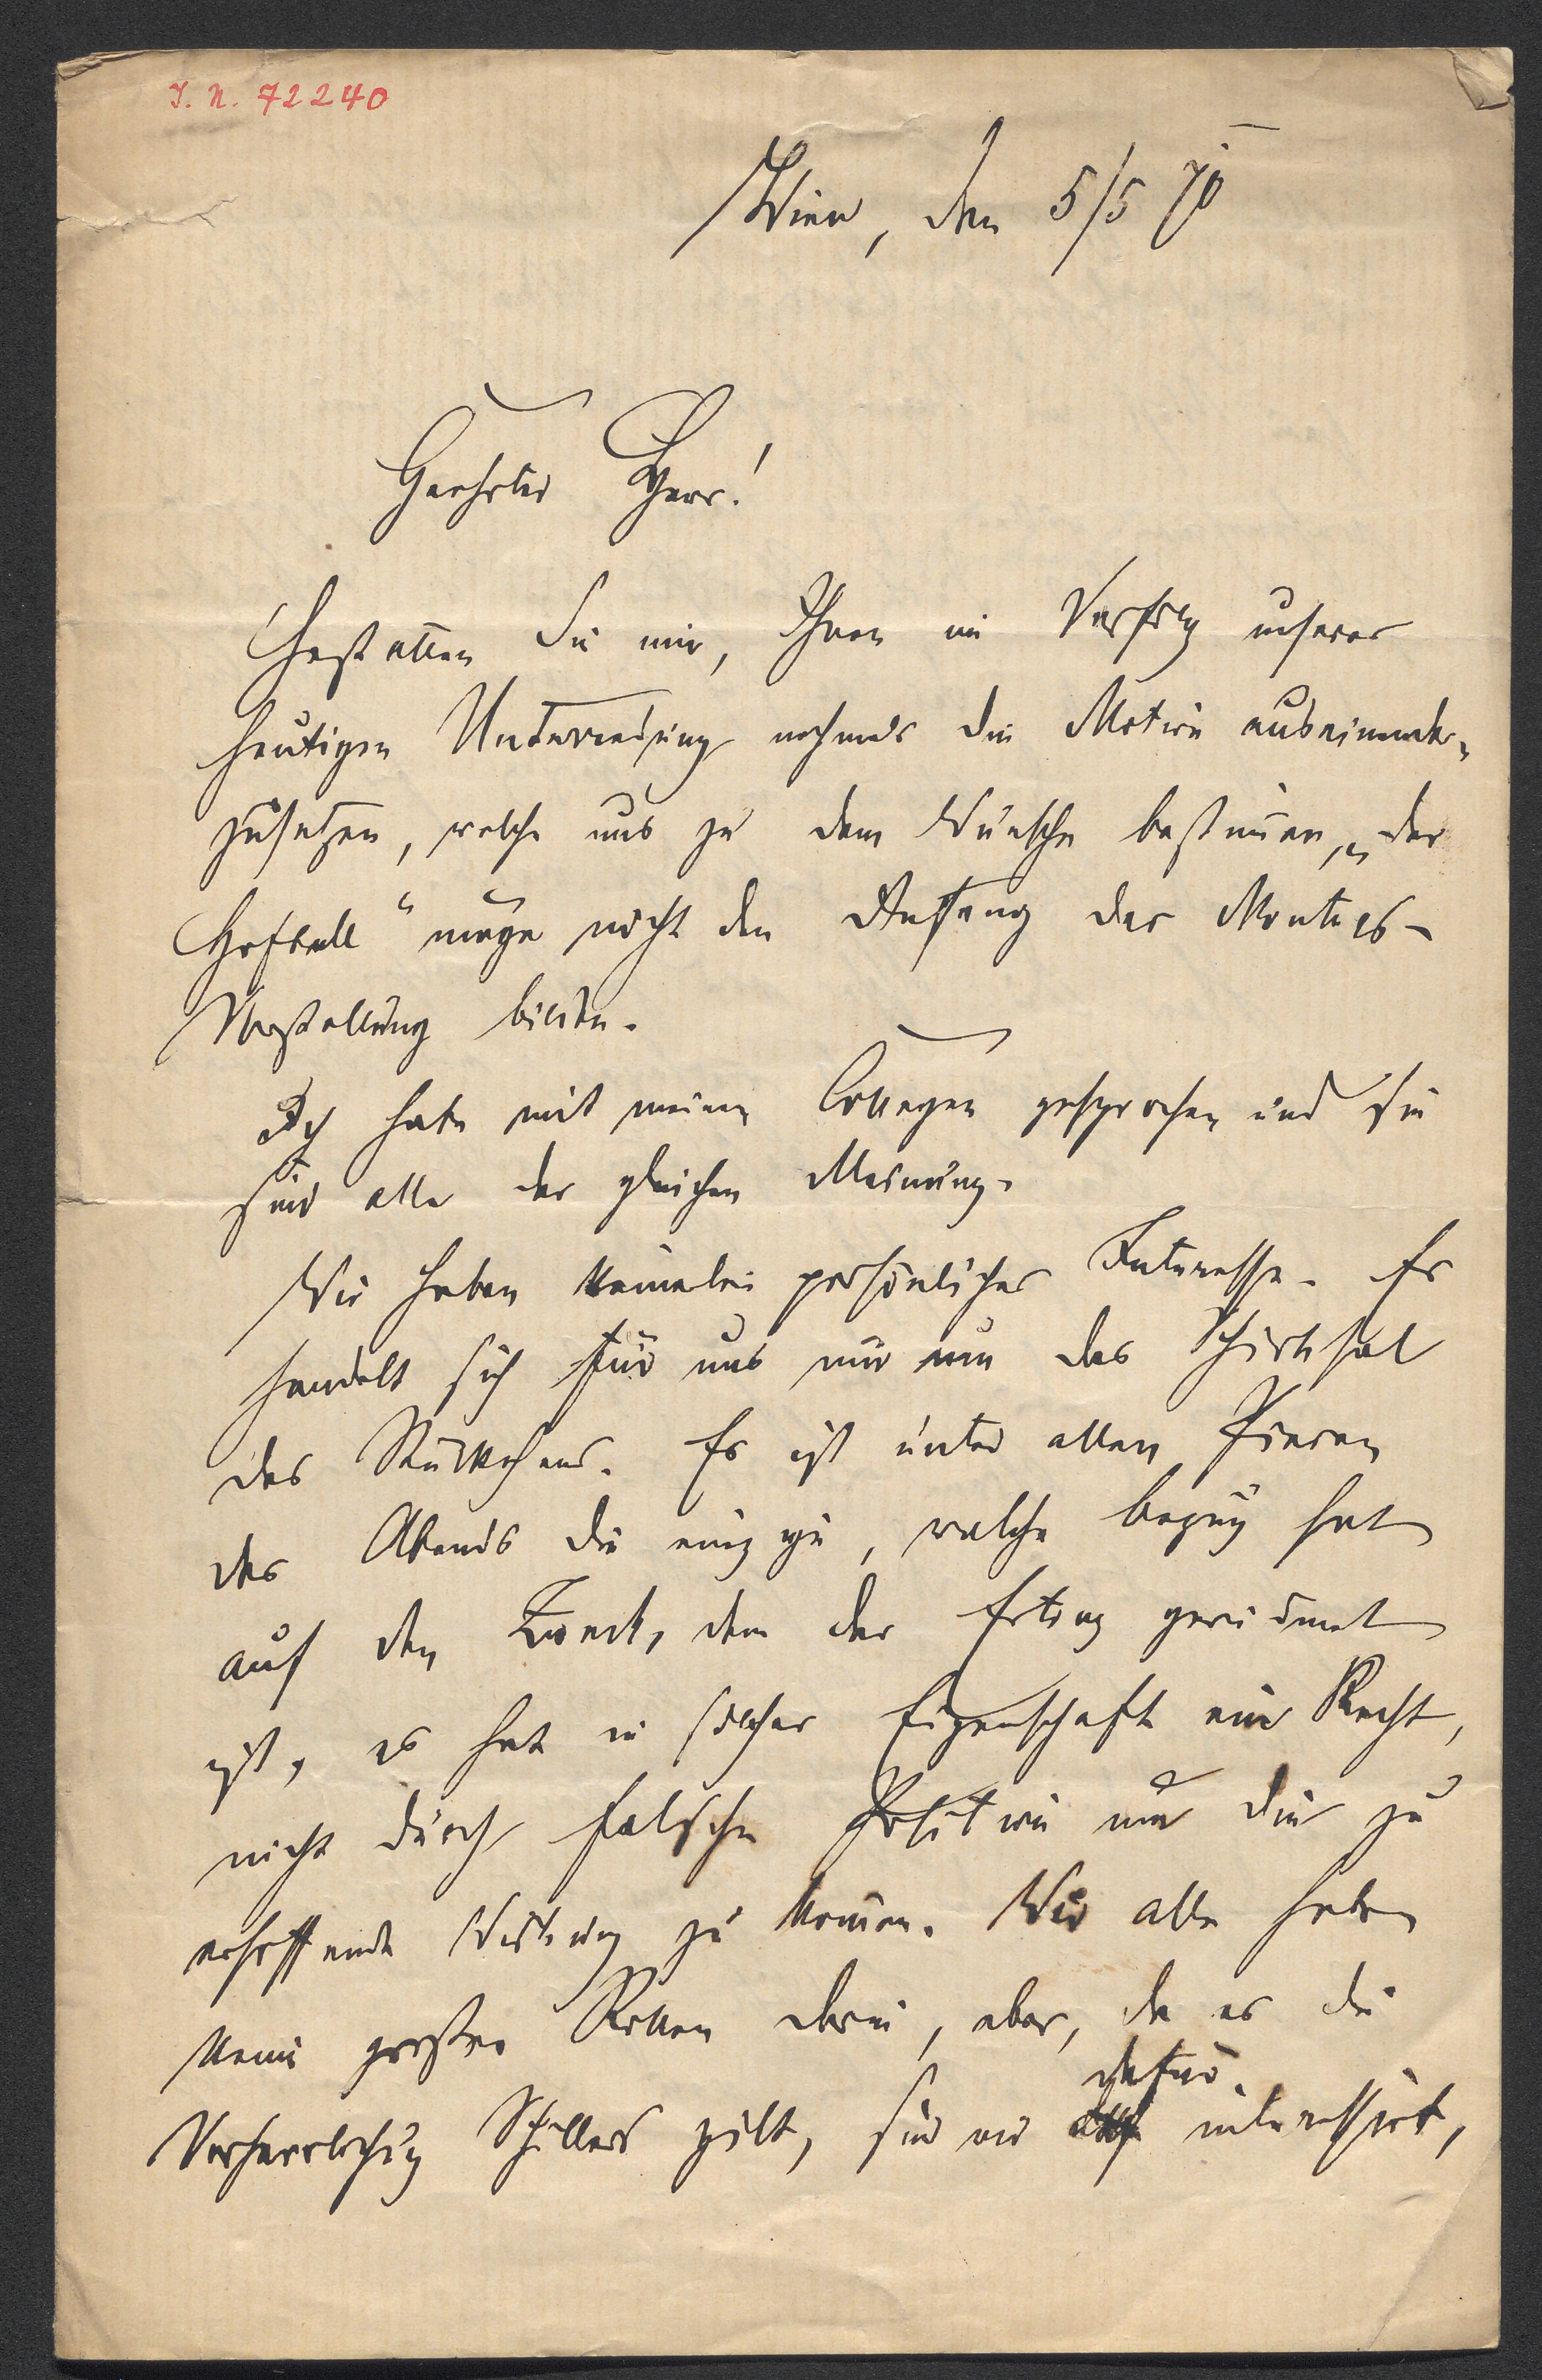 I. N. 72240
Wien, den 5/5 70
Geehrter Herr!
Gestatten Sie mir, Ihnen im Verfolg unserer
heutigen Unterredung nochmals die Motive auseinander-
zusetzen, welche uns zu dem Wunsche bestim̅en, „der
Hofball“ möge nicht den Anfang der Montags-
Vorstellung bilden.
Ich habe mit meinen Collegen gesprochen und sie
sind alle der gleichen Meinung.
Wir haben keinerlei persönliches Interesse. Es
handelt sich für uns nur um das Schicksal
des Stückchens. Es ist unter allen Piecen
des Abends die einzige, welche bezug hat
auf den Zweck, dem der Ertrag gewidmet
ist, es hat in solcher Eigenschaft ein Recht,
nicht durch falsche Position um die zu
erhoffende Wirkung zu kom̅en. Wir alle haben
keine großen Rollen darin, aber, da es die
dafür
Verherrlichung Schillers gilt, sind wir interessirt,